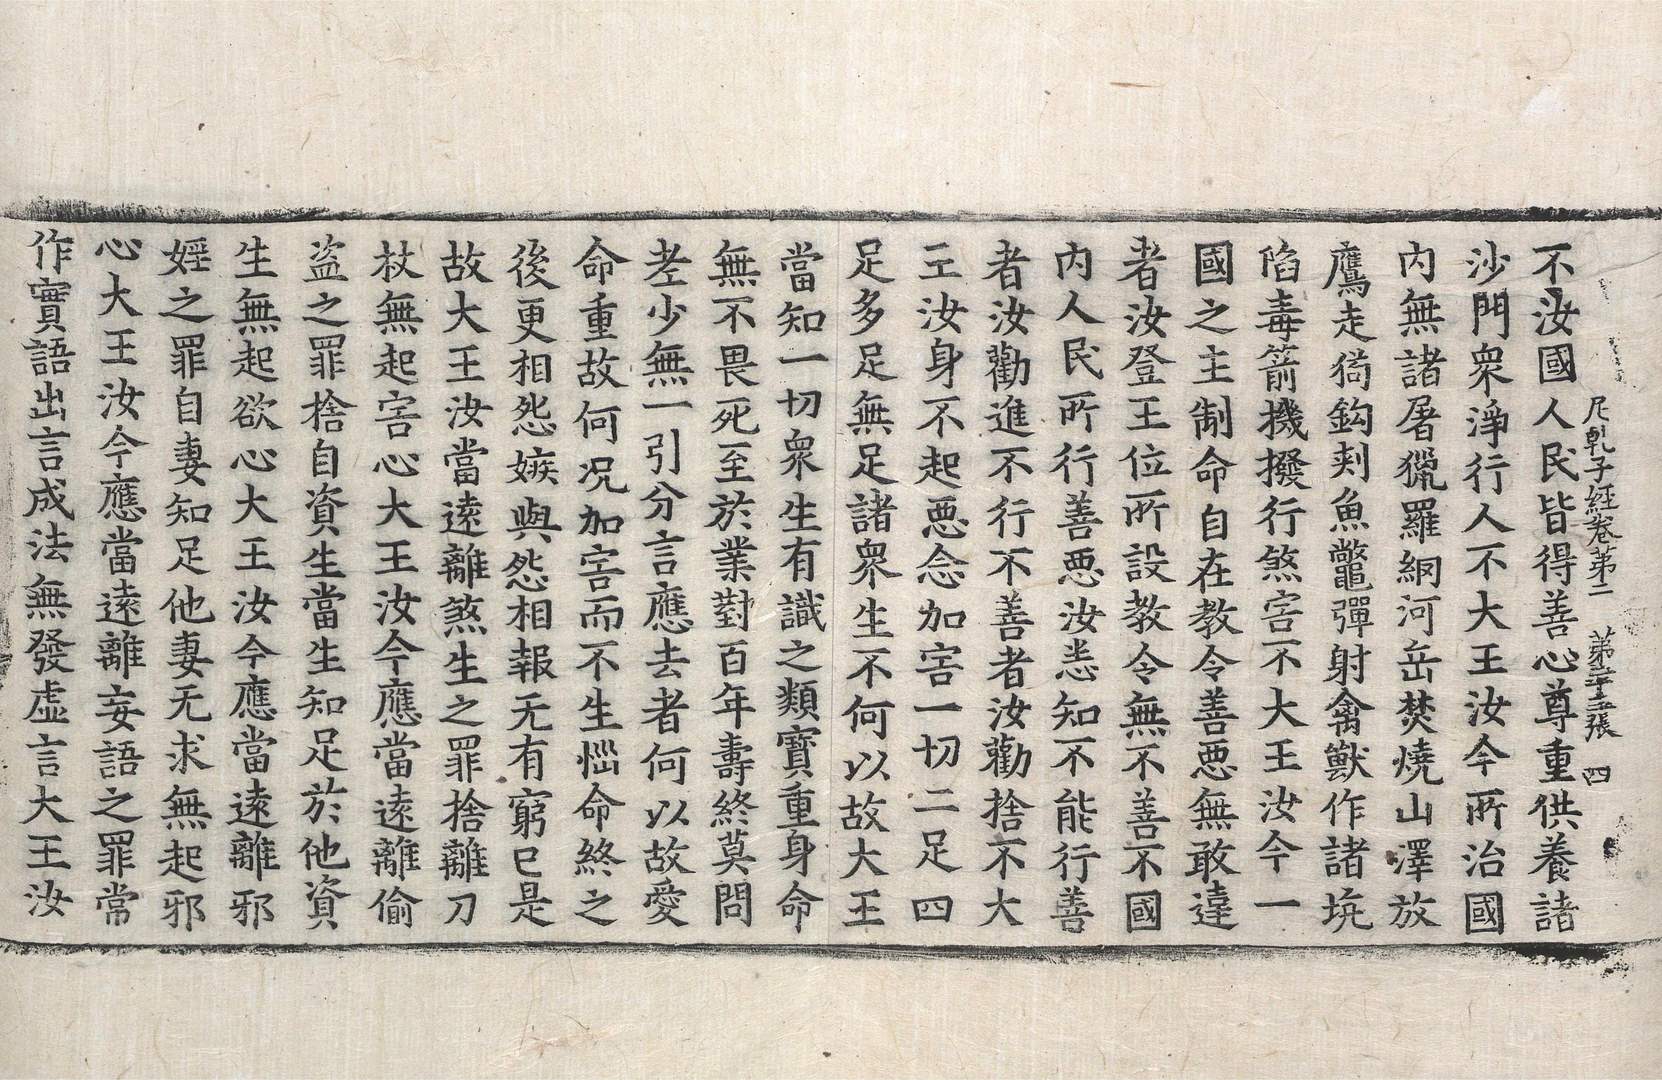 尼乹子經卷苐二　苐二十五張　四
不汝國人民皆得善心尊重供養諸
沙門衆淨行人不大王汝今所治國
内無諸屠獵羅網河岳焚燒山澤放
鷹走猗鈎刾魚鼈彈射禽獸作諸坑
陷毒箭機撥行煞害不大王汝今一
國之主制命自在教令善惡無敢違
者汝登王位所設教令無不善不國
内人民所行善惡汝悉知不能行善
者汝勸進不行不善者汝勸捨不大
王汝身不起惡念加害一切二足四
足多足無足諸衆生不何以故大王
當知一切衆生有識之類寶重身命
無不畏死至於業對百年壽終莫問
老少無一引分言應去者何以故愛
命重故何況加害而不生惱命終之
後更相怨嫉與怨相報无有窮已是
故大王汝當遠離煞生之罪捨離刀
杖無起害心大王汝今應當遠離偷
盜之罪捨自資生當生知足於他資
生無起欲心大王汝今應當遠離邪
婬之罪自妻知足他妻无求無起邪
心大王汝今應當遠離妄語之罪常
作實語出言成法無發虛言大王汝